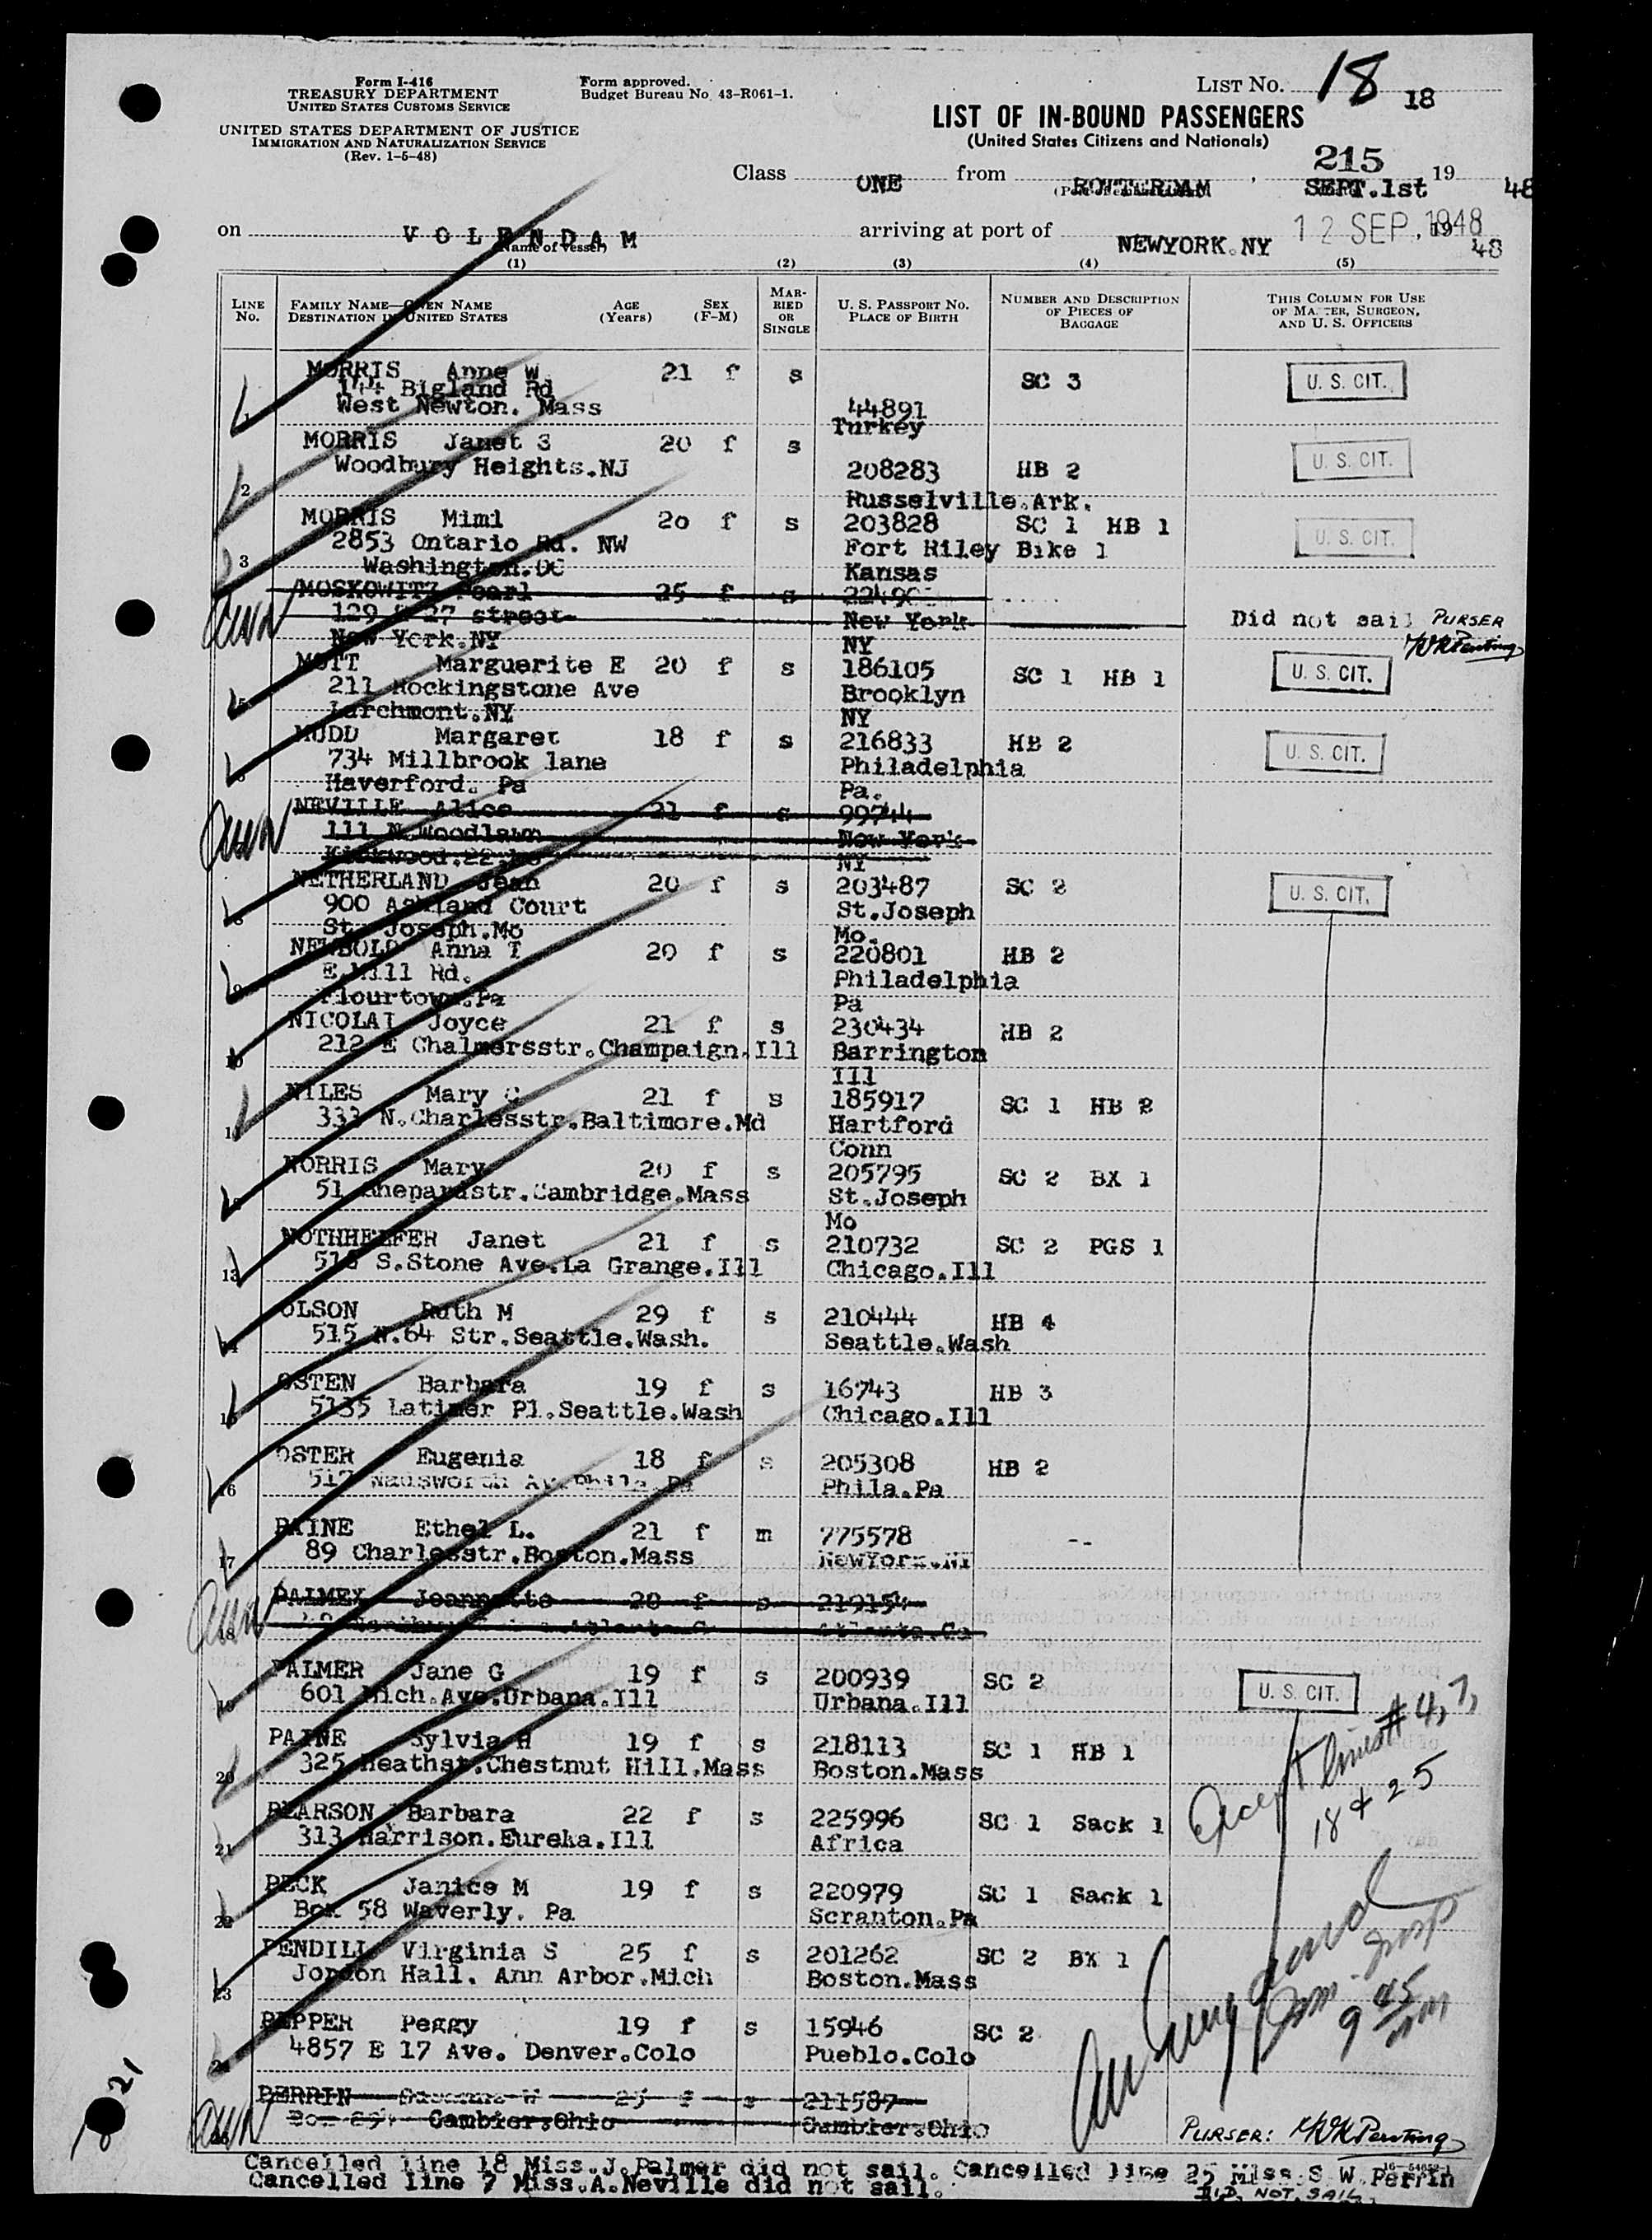 Form I-416
TREASURY DEPARTMENT
UNITED STATES CUSTOMS SERVICE
UNITED STATES DEPARTMENT OF JUSTICE
IMMIGRATION AND NATURALIZATION SERVICE
(Rev. 1-5-48)
Form approved.
Budget Bureau No. 43-R061-1.
LIST No. 18 18
LIST OF IN-BOUND PASSENGERS
(United States Citizens and Nationals)
215
Class ONE from ROTTERDAM, SEPT.1st 19 48
on VOLENDAM arriving at port of NEWYORK.NY 12 SEP 1948, 19 48
(Name of vessel)
(1) (2) (3) (4) (5)
LINE No. FAMILY NAME—GIVEN NAME DESTINATION IN UNITED STATES AGE (Years) SEX (F-M) MARRIED OR SINGLE U. S. PASSPORT No. PLACE OF BIRTH NUMBER AND DESCRIPTION OF PIECES OF BAGGAGE THIS COLUMN FOR USE OF MASTER, SURGEON, AND U. S. OFFICERS
MORRIS Anne W 21 f s SC 3 U. S. CIT.
144 Bigland Rd
1 West Newton. Mass 44891
Turkey
MORRIS Janet S 20 f s U. S. CIT.
Woodbury Heights.NJ 208283 HB 2
2 Russelville.Ark.
MORRIS Mimi 20 f s 203828 SC 1 HB 1 U. S. CIT.
2853 Ontario Rd. NW Fort Riley Bike 1
3 Washington.DC Kansas
MOSKOWITZ Pearl 25 f s
129 27 street New York Did not sail PURSER
New York.NY NY
MOTT Marguerite E 20 f s 186105 SC 1 HB 1 U. S. CIT.
211 Rockingstone Ave Brooklyn
5 Larchmont.NY NY
MUDD Margaret 18 f s 216833 HB 2 U. S. CIT.
734 Millbrook lane Philadelphia
Haverford. Pa Pa.
NEVILLE Alice 21 f s 99744
111 N.Woodlawn New York
Kirkwood.22.Mo NY
NETHERLAND Jean 20 f s 203487 SC 2 U. S. CIT.
900 Ashland Court St.Joseph
8 St. Joseph.Mo Mo.
NEWBOLD Anna T 20 f s 220801 HB 2
E.Mill Rd. Philadelphia
9 Flourtown.Pa Pa
NICOLAI Joyce 21 f s 230434 HB 2
212 E Chalmersstr.Champaign.Ill Barrington
10 Ill
NILES Mary C 21 f s 185917 SC 1 HB 2
333 N.Charlesstr.Baltimore.Md Hartford
11 Conn
NORRIS Mary 20 f s 205795 SC 2 BX 1
51 Shepardstr.Cambridge.Mass St.Joseph
12 Mo
NOTHHELFER Janet 21 f s 210732 SC 2 PGS 1
13 516 S.Stone Ave.La Grange.Ill Chicago.Ill
OLSON Ruth M 29 f s 210444 HB 4
14 515 N.64 Str.Seattle.Wash. Seattle.Wash
OSTEN Barbara 19 f s 16743 HB 3
15 5135 Latimer Pl.Seattle.Wash Chicago.Ill
OSTER Eugenia 18 f s 205308 HB 2
16 517 Wadsworth Av.Phila.Pa Phila.Pa
PAINE Ethel L. 21 f m 775578 --
17 89 Charlesstr.Boston.Mass NewYork.NY
PALMEX Jeannette 20 f s 219154
18 Atlanta.Ga
PALMER Jane G 19 f s 200939 SC 2 U. S. CIT.
19 601 Mich.Ave.Urbana.Ill Urbana.Ill
PAINE Sylvia H 19 f s 218113 SC 1 HB 1 Except lines #4, 7,
20 325 Heathst.Chestnut Hill.Mass Boston.Mass 18 & 25
PEARSON Barbara 22 f s 225996 SC 1 Sack 1
21 313 Harrison.Eureka.Ill Africa
PECK Janice M 19 f s 220979 SC 1 Sack 1
22 Box 58 Waverly. Pa Scranton.Pa
PENDILL Virginia S 25 f s 201262 SC 2 BX 1
23 Jordon Hall. Ann Arbor.Mich Boston.Mass
PEPPER Peggy 19 f s 15946 SC 2
24 4857 E 17 Ave. Denver.Colo Pueblo.Colo
9 45
PERRIN 25 f s 211587
Gambier.Ohio Gambier.Ohio
PURSER:
Cancelled line 18 Miss.J.Palmer did not sail. Cancelled line 25 Miss.S.W.Perrin
DID NOT SAIL
Cancelled line 7 Miss.A.Neville did not sail.
21